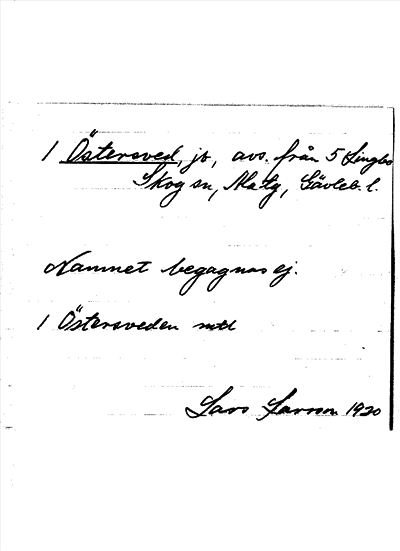 1 Östersved, jb, avs. från 5 Lingbo
Skog sn, Ala tg, Gävleb. l.
Namnet begagnas ej.
1 Östersveden mtl
Lars Larsson 1920